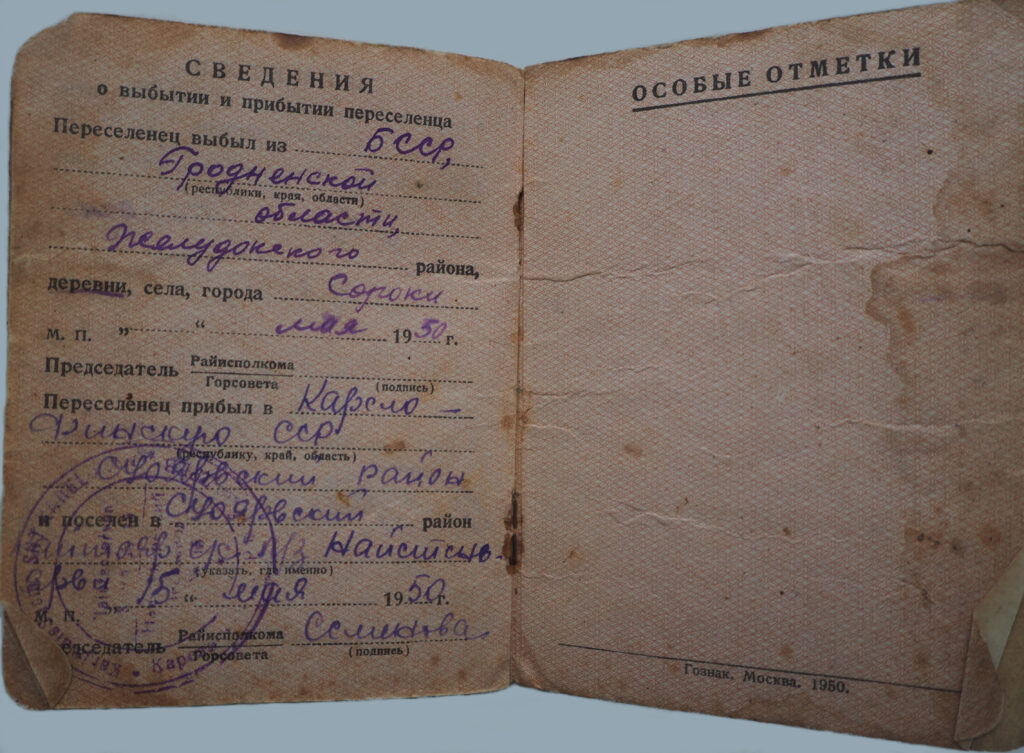 СВЕДЕНИЯ
о выбытии и прибытии переселенца
Переселенец выбыл из БССР,
Гродненской
(республики, края, области)
области,
Желудокского района,
деревни, села, города Сороки
м. п. „ “ мая 1950 г.
Председатель Райисполкома
Горсовета
(подпись)
Переселенец прибыл в Карело-
Финскую ССР
(республику, край, область)
Суоярвский район
и поселен в Суоярвский район
Найстен-
(указать, где именно)
ярви 15 “ мая 1950 г.
М. П.
Председатель Райисполкома Семенова
Горсовета
(подпись)
ОСОБЫЕ ОТМЕТКИ
Гознак. Москва. 1950.